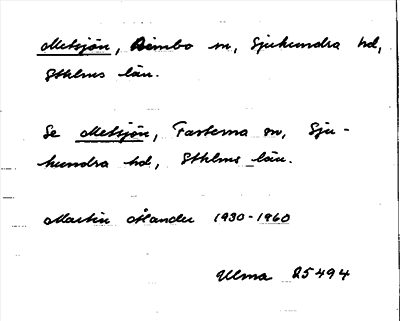 Metsjön, Rimbo sn, Sjuhundra hd,
Sthlms län.
Se Metsjön, Fasterna sn, Sju-
hundra hd, Sthlms län.
Martin Ålander 1930-1960
Ulma 25494